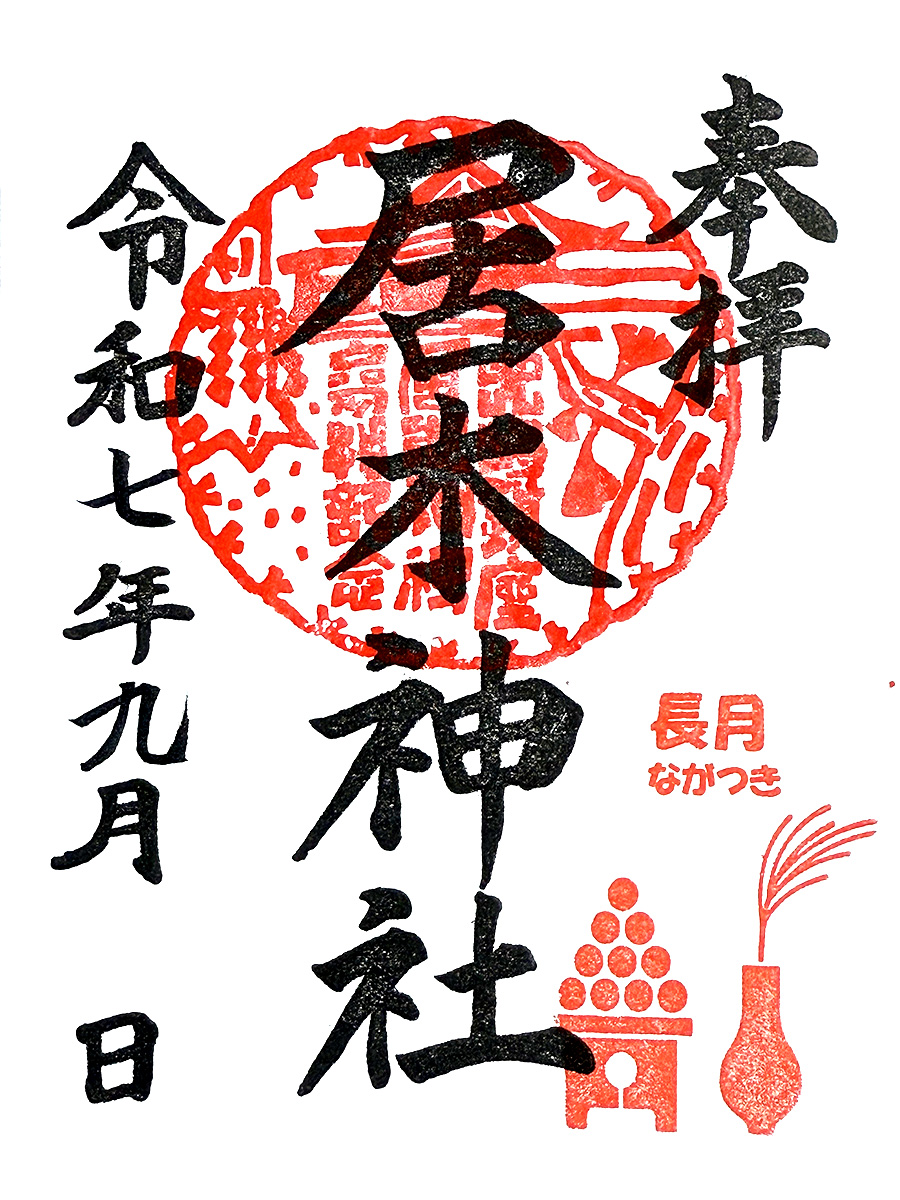 奉拝
居木神社
令和七年九月 日
長月
ながつき